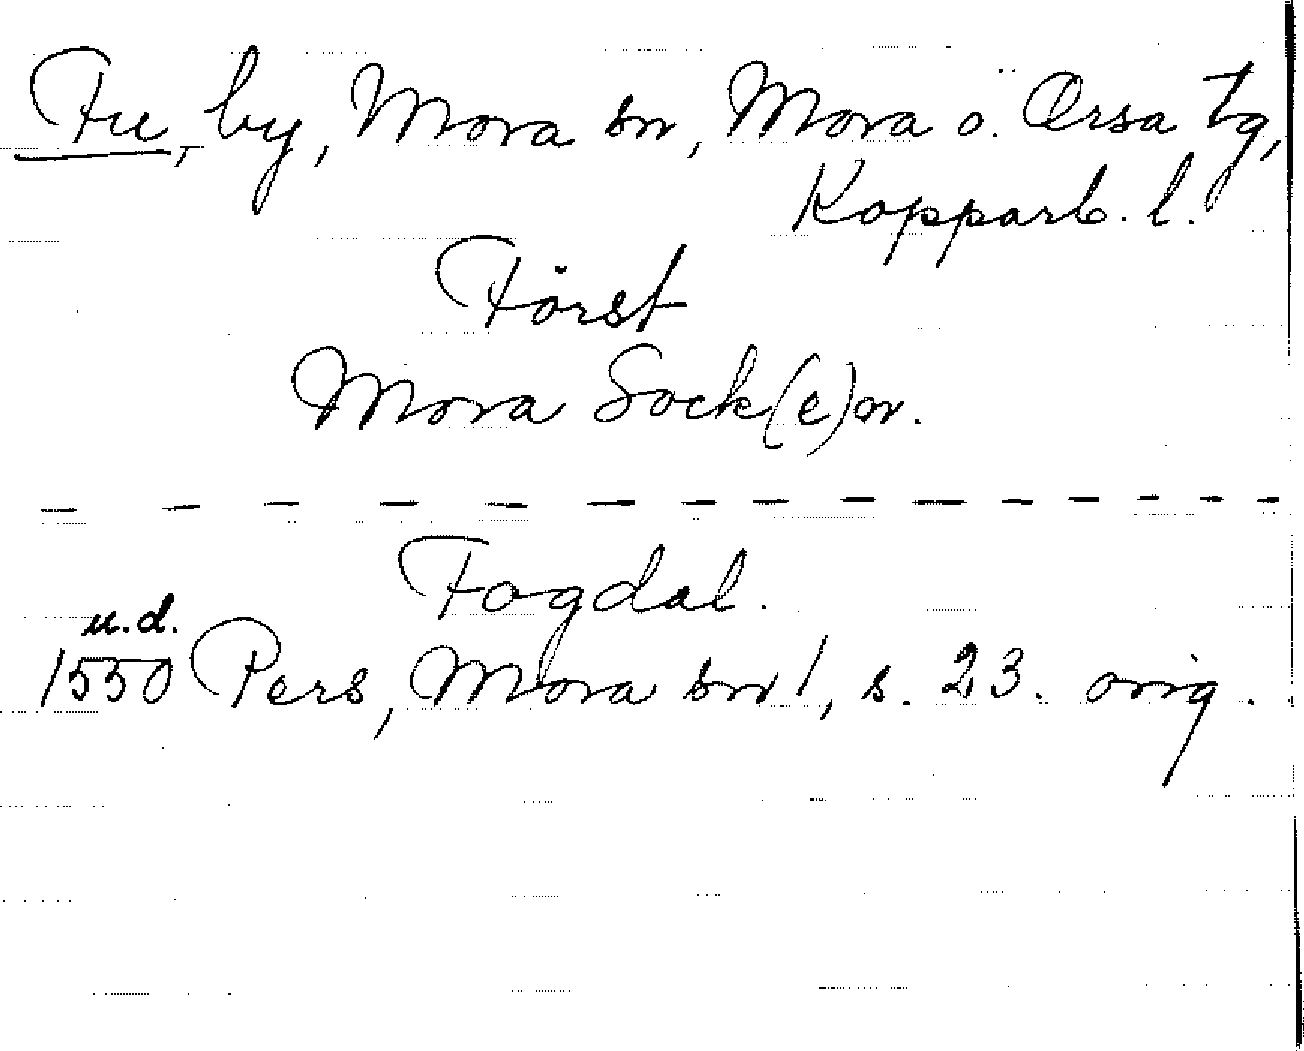 Fu, by, Mora sn, Mora o. Orsa tg,
Kopparb. l.
Först
Mora Sock(e)n.
Fogdal.
u.d.
1550 Pers, Mora sn 1, s. 23. orig.